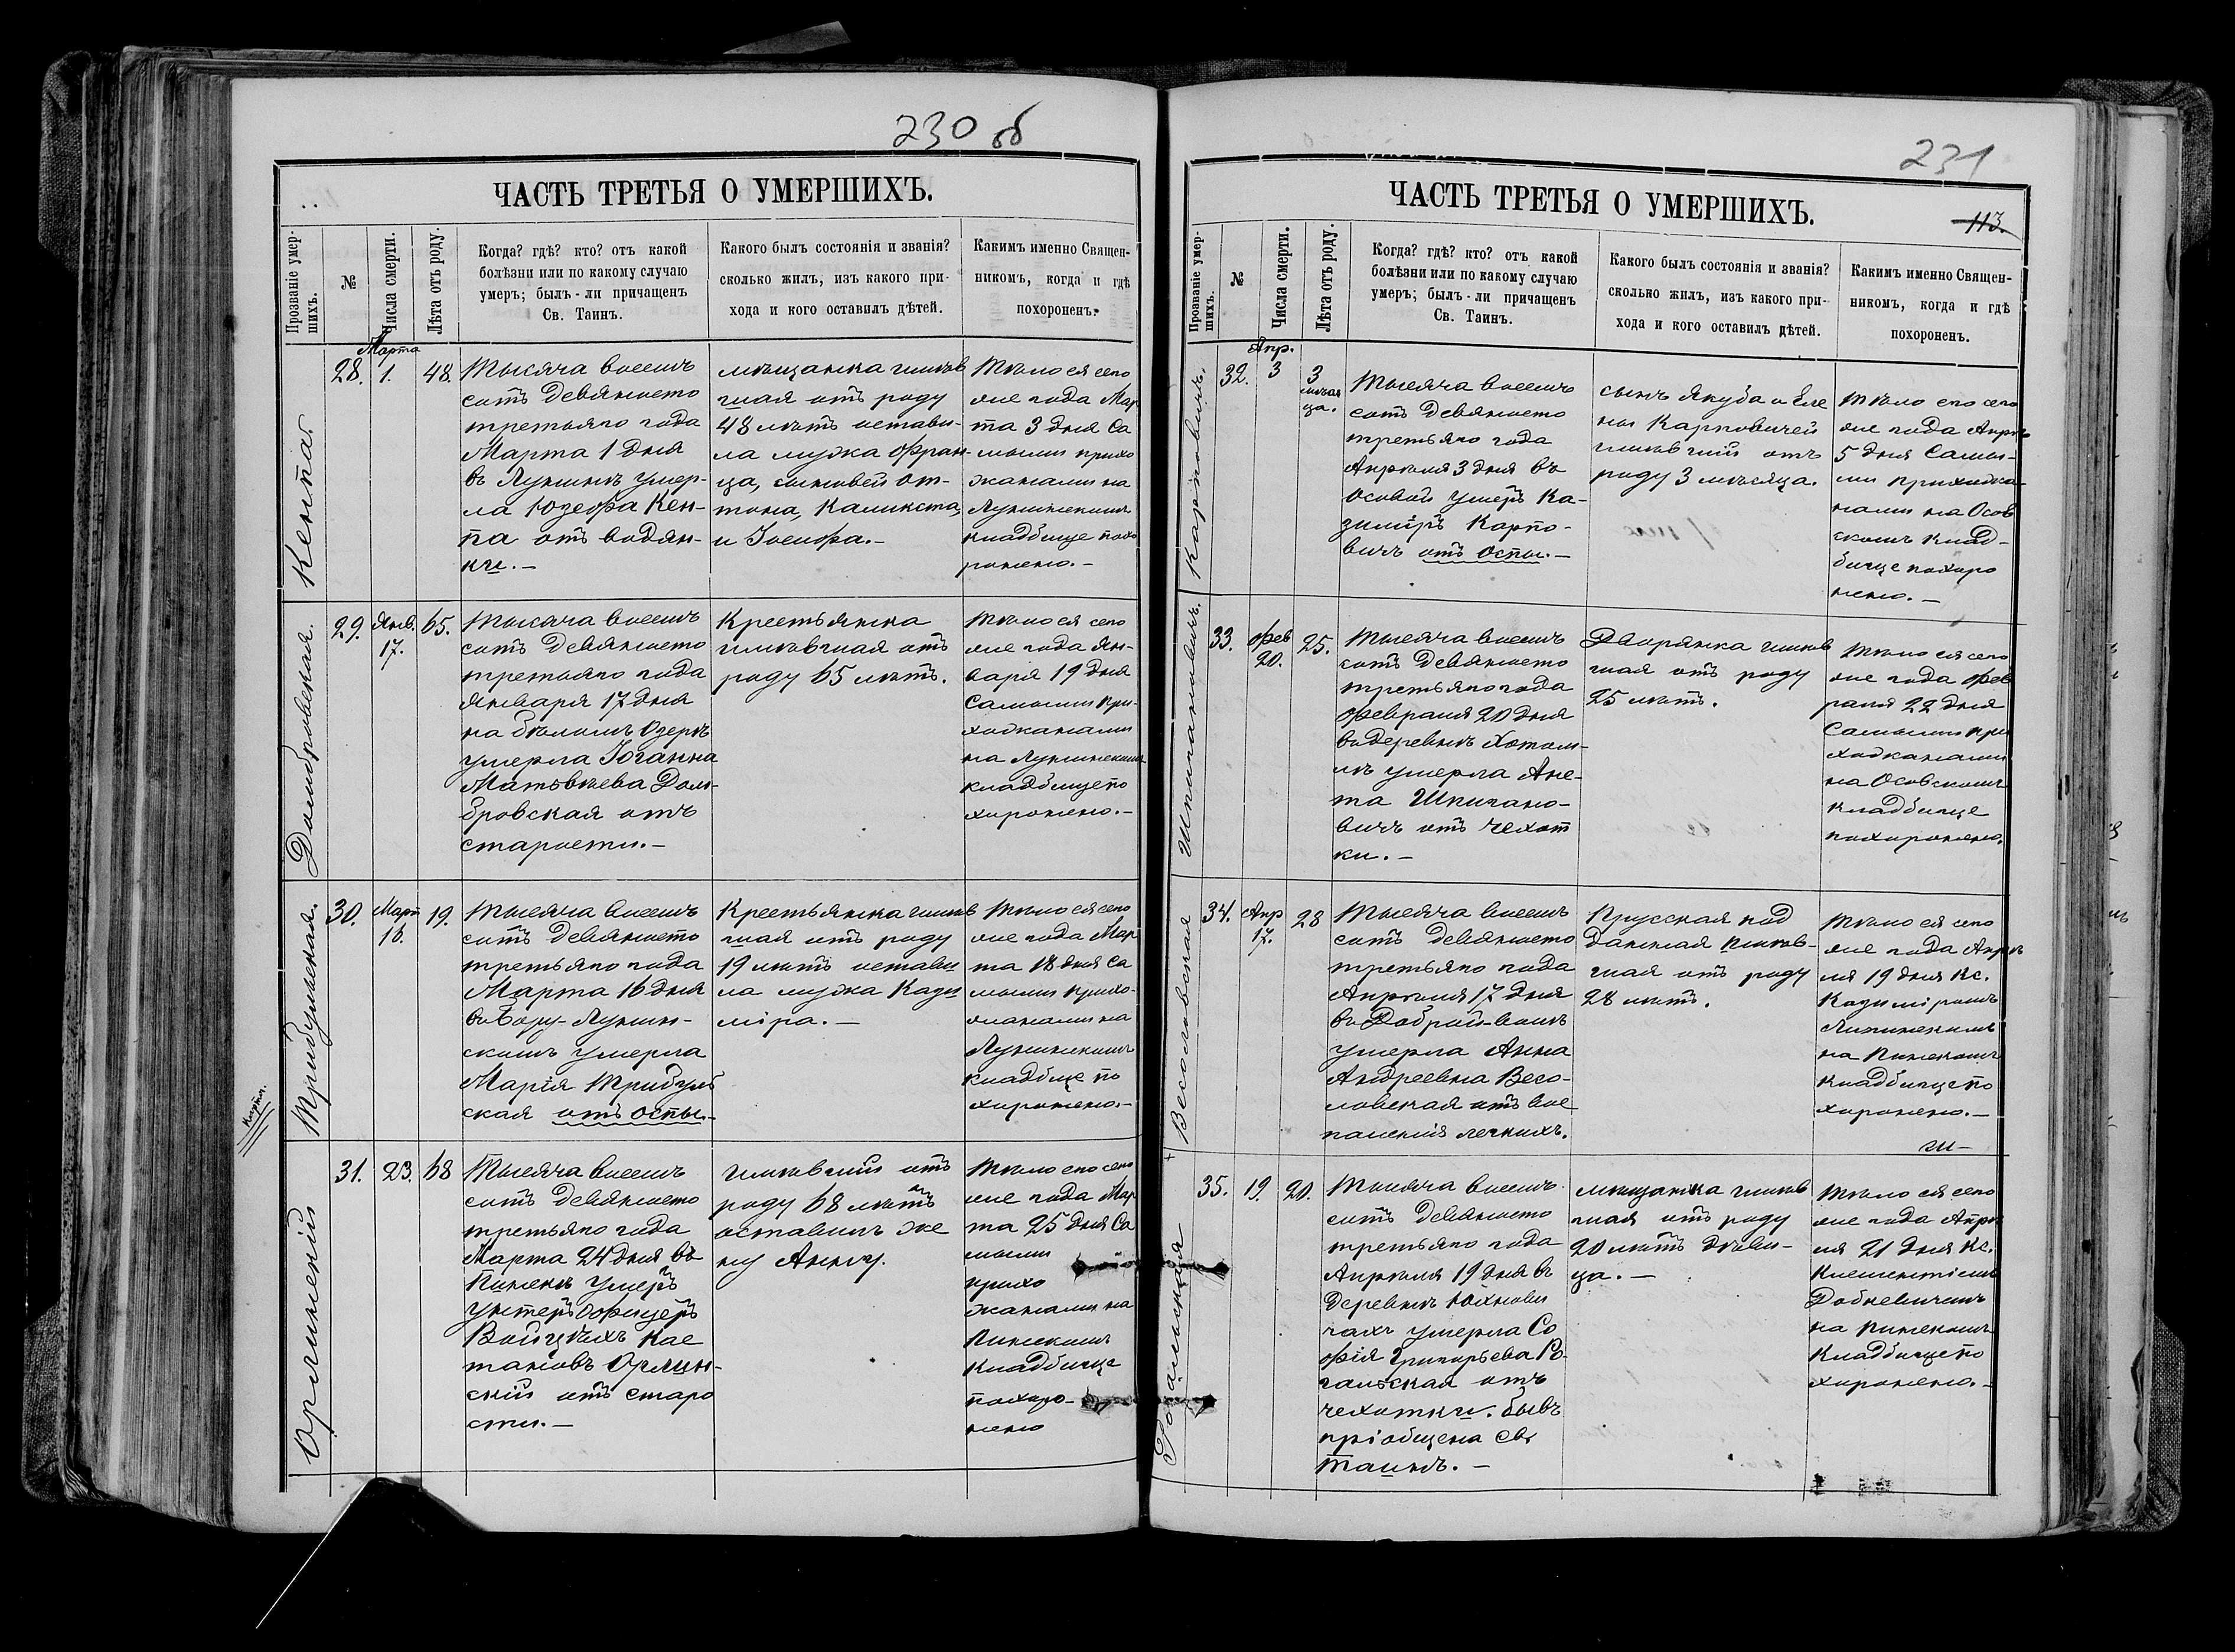 230 об
ЧАСТЬ ТРЕТЬЯ О УМЕРШИХЪ.
Прозваніе умер-
шихъ.
№
Числа смерти.
Лѣта отъ роду.
Когда? гдѣ? кто? отъ какой
болѣзни или по какому случаю
умеръ; былъ-ли причащенъ
Св. Таинъ.
Какого былъ состоянія и званія?
сколько жилъ, изъ какого при-
хода и кого оставилъ дѣтей.
Какимъ именно Священ-
никомъ, когда и гдѣ
похороненъ.
Кемпа
28.
Марта
1.
48.
Тысяча восемъ
сотъ девяносто
третьяго года
Марта 1 дня
въ Лунинѣ умер-
ла Юзефа Кем-
па отъ водян-
ки.—
мѣщанка имѣв
шая отъ роду
48 лѣтъ остави-
ла мужа Фран-
ца, сыновей Ан-
тона, Каликста,
и Іосифа.—
Тѣло ея сего
же года Мар
та 3 дня Са
мыми прихо
жанами на
Лунинскомъ
кладбище похо
ронено.—
Домбровская.
29.
Янв.
17.
65.
Тысяча восемъ
сотъ девяносто
третьяго года
Января 17 дня
на Бѣломъ Озерѣ
умерла Іоганна
Матвѣева Дом-
бровская отъ
старости.—
Крестьянка
имѣвшая отъ
роду 65 лѣтъ.
Тѣло ея сего
же года Ян-
варя 19 дня
Самыми при-
хожанами
на Лунинскомъ
кладбище по
хоронено.—
Трибульская.
30.
Март
16.
19.
Тысяча восемъ
сотъ девяносто
третьяго года
Марта 16 дня
въ Бору-Лунин-
скомъ умерла
Марія Трибуль
ская отъ оспы.—
Крестьянка имѣв
шая отъ роду
19 лѣтъ остави
ла мужа Кази
міра.—
Тѣло ея сего
же года Мар
та 18 дня Са
мыми прихо-
жанами на
Лунинскомъ
кладбище по
хоронено.—
Орлинскій
31.
23.
68
Тысяча восемъ
сотъ девяносто
третьяго года
Марта 24 дня въ
Пинскѣ умеръ
унтеръ офицеръ
Войцѣхъ Кае
тановъ Орлин-
скій отъ старо
сти.—
имѣвшій отъ
роду 68 лѣтъ
оставилъ же
ну Анну.
Тѣло его сего
же года Мар
та 25 дня Са
мыми
прихо
жанами на
Пинскомъ
кладбище
похоро-
нено
231
ЧАСТЬ ТРЕТЬЯ О УМЕРШИХЪ.
113.
Прозваніе умер-
шихъ.
№
Числа смерти.
Лѣта отъ роду.
Когда? гдѣ? кто? отъ какой
болѣзни или по какому случаю
умеръ; былъ-ли причащенъ
Св. Таинъ.
Какого былъ состоянія и званія?
сколько жилъ, изъ какого при-
хода и кого оставилъ дѣтей.
Какимъ именно Священ-
никомъ, когда и гдѣ
похороненъ.
Карповичъ.
32.
Апр.
3
3
мѣся
ца.
Тысяча восемъ
сотъ девяносто
третьяго года
Апрѣля 3 дня въ
Осовой умеръ Ка-
зиміръ Карпо-
вичъ отъ оспы.—
сынъ Якуба и Еле
ны Карповичей
имѣвшій отъ
роду 3 мѣсяца.
Тѣло его сего
же года Апрѣ
5 дня Самы-
ми прихожа-
нами на Осов
скомъ клад-
бище похоро
нено.—
Шпигановичъ.
33.
Фев
20.
25.
Тысяча восемъ
сотъ девяносто
третьяго года
Февраля 20 дня
въ деревнѣ Хотом-
лѣ умерла Ане-
та Шпигано-
вичъ отъ чехот
ки.—
Дворянка имѣв
шая отъ роду
25 лѣтъ.
Тѣло ея сего
же года Фев
раля 22 дня
Самыми при
хожанами
на Осовскомъ
кладбище
похоронено.
Весоловская
34.
Апр
17.
28
Тысяча восемъ
сотъ девяносто
третьяго года
Апрѣля 17 дня
въ Доброй-волѣ
умерла Анна
Андреевна Весо-
ловская отъ вос
паленія легкихъ.
Прусская под
данная имѣв-
шая отъ роду
28 лѣтъ.
Тѣло ея сего
же года Апрѣ
ля 19 дня Кс.
Казиміромъ
на Пинскомъ
кладбище по
хоронено.—
Рогальская
35.
19.
20.
Тысяча восемъ
сотъ девяносто
третьяго года
Апрѣля 19 дня въ
деревнѣ Юхнови
чахъ умерла Со
фія Григорьева Ро-
гальская отъ
чехотки. бывъ
пріобщена Св.
Таинъ.—
мѣщанка имѣв
шая отъ роду
20 лѣтъ дѣви-
ца.—
Тѣло ея сего
же года Апрѣ
ля 21 дня Кс.
Климентіемъ
Добкевичемъ
на Пинскомъ
кладбище по
хоронено.—